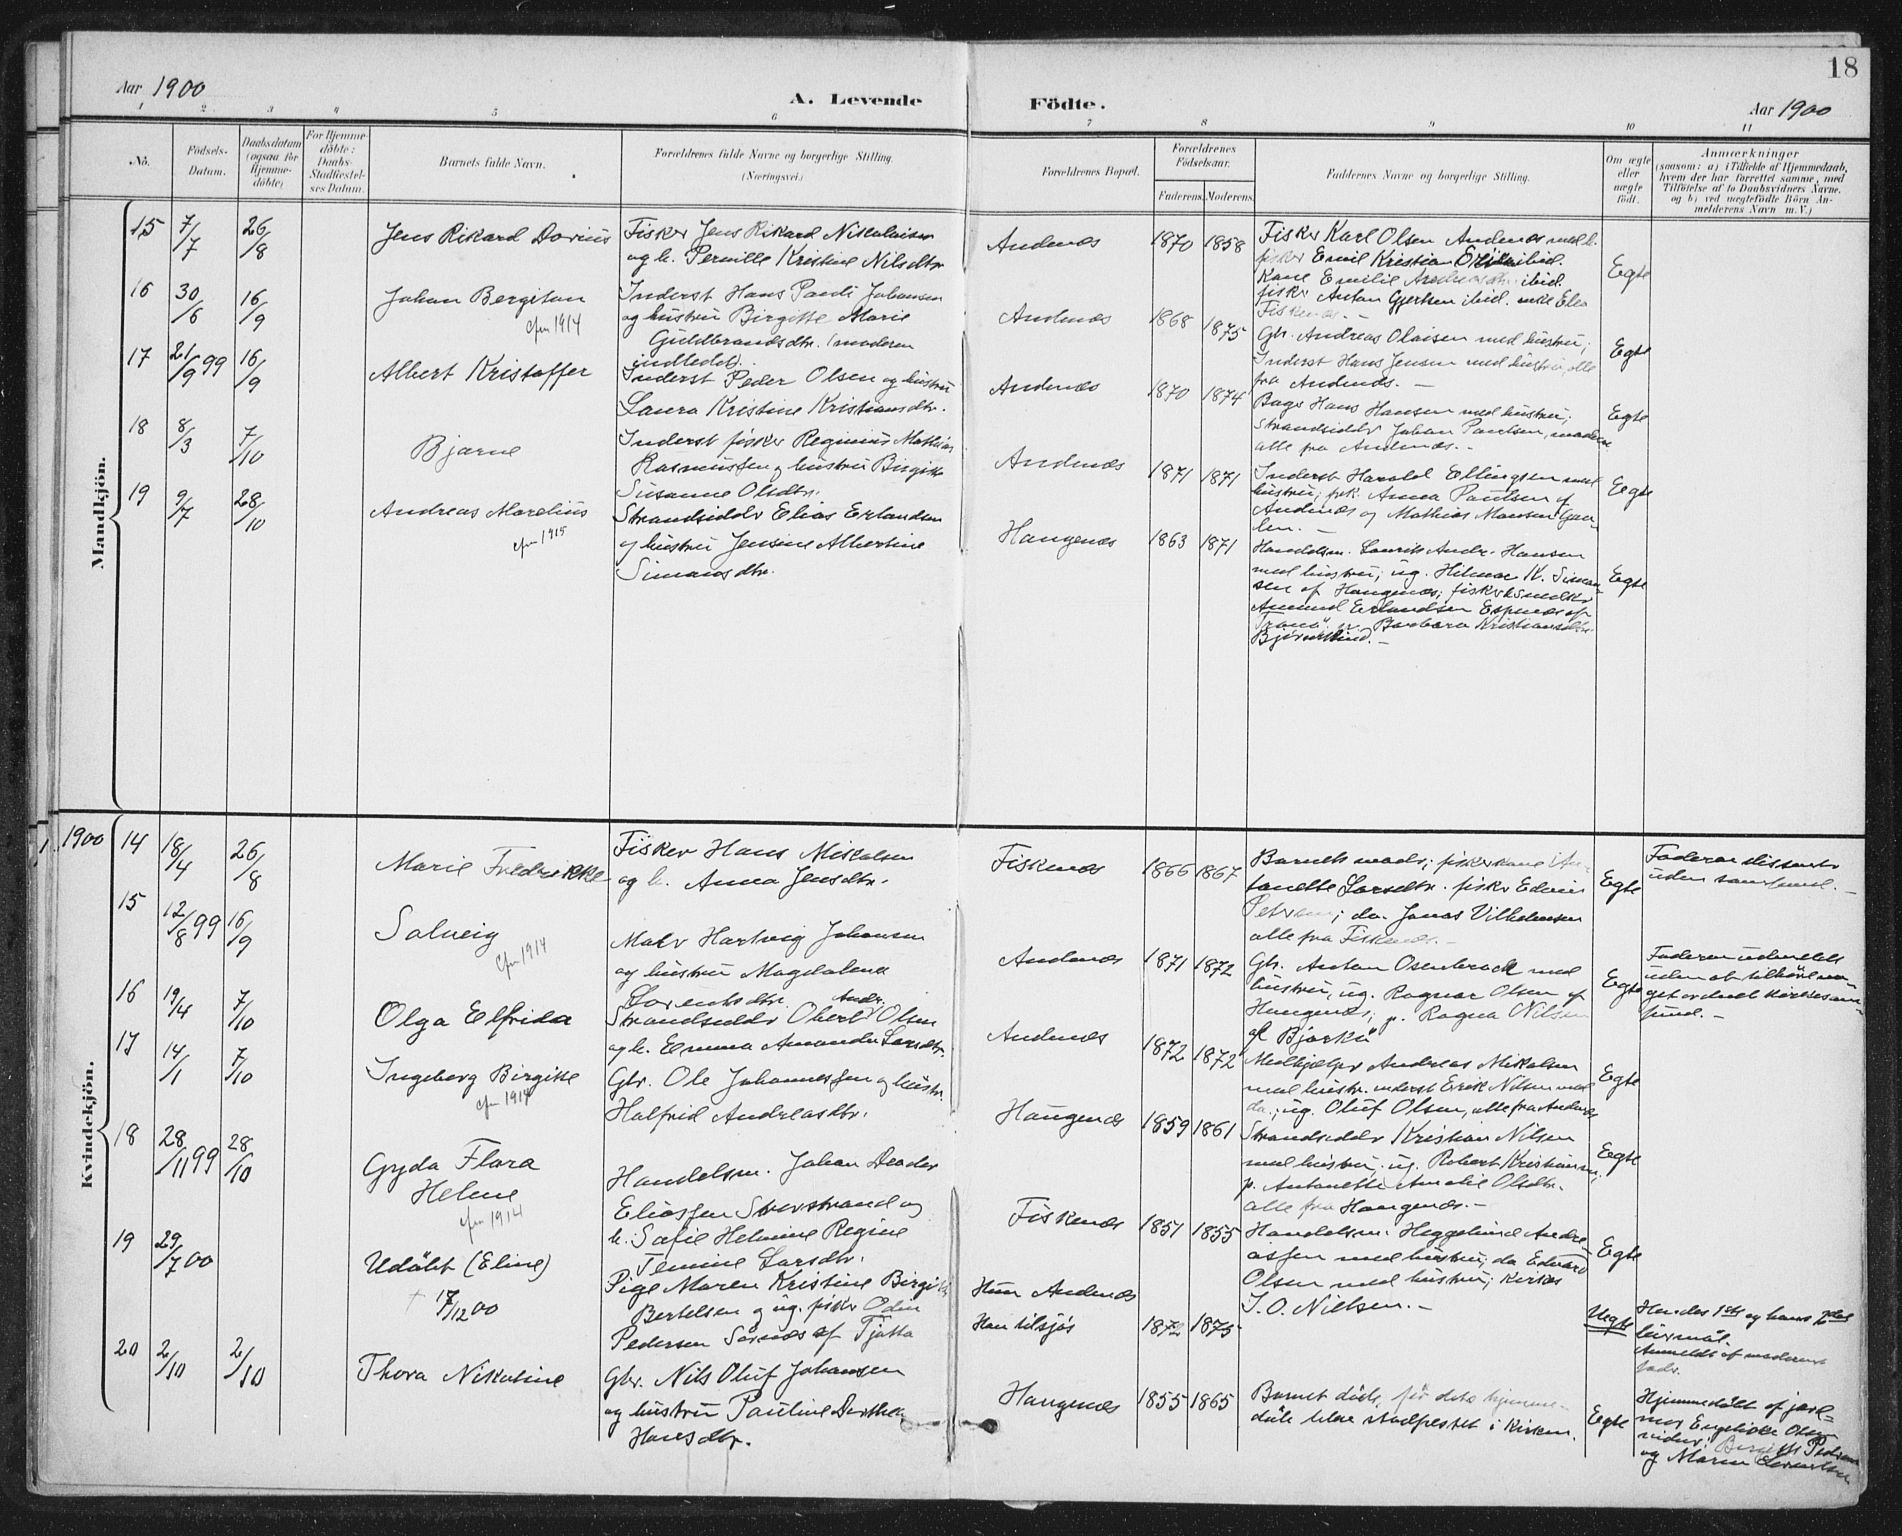 18
Aar 1900
A. Levende Födte.
Aar 1900
1 2 3 4 5 6 7 8 9 10 11
No.
Födsels-Datum.
Daabsdatum (ogsaa for Hjemme-döbte)
For Hjemme-döbte: Daabs-Stadfæstel-ses Datum.
Barnets fulde Navn.
Forældrenes fulde Navne og borgerlige Stilling.
(Næringsvei.)
Forældrenes Bopæl.
Forældrenes Födselsaar.
Faderens. Moderens.
Faddernes Navne og borgerlige Stilling.
Om ægte eller uægte født.
Anmærkninger
(saasom: a) i Tilfælde af Hjemmedaab,
hvem der har forrettet samme, med
Tilföielse af to Daabsvidners Navne.
og b) ved uægtefödte Börn An-
melderens Navn m. V.)
Mandkjön.
15 7/7 26/8 Jens Rikard Dorius
Fisker Jens Rikard Nikolaisen
og h. Pernille Kristine Nilsdtr.
Andenæs 1870 1858
Fisker Karl Olsen Andenæs med h.
fisker Emil Kristian ibid.
Kone Emilie ibid.
fisker Anton Gjertsen ibid.
Egte
16 30/6 16/9 Johan Bergiton
cfm 1914
Inderst Hans Pauli Johansen
og hustru Birgitte Marie
Guldbrandsdtr. (moderen
indledet)
Andenæs 1868 1875
Gbr. Andreas Olaisen med hustru;
Inderst Hans Jensen med hustru, alle
fra Andenæs. —
Egte
17 21/9 99 16/9 Albert Kristoffer
Inderst Peder Olsen og hustru
Laura Kristine Kristiansdtr.
Andenæs 1870 1874
Bager Hans Hansen med hustru;
Strandsidder Johan Paulsen, moderen
alle fra Andenæs. —
Egte
18 8/3 7/10 Bjarne
Inderst fisker Reginius Mathias
Rasmussen og hustru Birgitte
Susanne Olsdtr.
Andenæs 1871 1871
Inderst Harald Ellingsen med
hustru; frk. Anna Paulsen af
Andenæs og Mathias Hansen
Egte
19 9/7 28/10 Andreas Marelius
cfm 1915
Strandsidder Elias Erlandsen
og hustru Jensine Albertine
Simonsdtr.
Haugenæs 1863 1871
Handelsm. Laurits Andr. Hansen
med hustru; ug. Hilmar K. Simon-
sen af Haugenæs; fisker
Amund Erlandsen Espenæs af
Tranö, p. Barbara Kristiansdtr.
Egte
Kvindekjön.
1900 14 18/4 26/8 Marie Fredrikke
Fisker Hans Nikolsen
og h. Anna Jensdtr.
Fiskenæs 1866 1867
Barnets moder; fiskerkone An-
tonette Larsdtr. fisker Edvin
Petersen; do. Jonas Vilhelmsen
alle fra Fiskenæs. —
Egte
Faderen dissenter
uden samfund. —
15 12/8 99 16/9 Solveig
cfm 1914
Maler Hartvig Johansen
og hustru Magdalena
Lorentsdtr.
Andenæs 1871 1872
Gbr. Anton Osenbrock med
hustru, ug. Ragnar Olsen af
Haugenæs; p. Ragna Nilsen
af Bjarkö
Egte
Faderen udmeldt
uden at tilhöre no-
get ordnet kirkesam-
fund. —
16 19/4 7/10 Olga Elfrida
Strandsidder Obert Andr. Olsen
og h. Emma Amanda Larsdtr.
Andenæs 1872 1872
Medhjelper Andreas Nikolsen
med hustr. inderst Erik Nilsen med
do.; ug. Oluf Olsen, alle fra Andenæs
Egte
17 14/1 7/10 Ingeborg Birgitte
cfm 1914
Gbr. Ole Johannessen og hustr.
Halfrid Andreasdtr.
Haugenæs 1859 1861
Strandsidder Kristian Nilsen
med hustru; ug. Robert Kristiansen,
p. Antonette Amalie Olsdtr.
alle fra Haugenæs. —
Egte
18 28/11 99 28/10 Gyda Flora
Helene
cfm 1914
Handelsm. Johan Deader
Eliassen Storstrand og
h. Sofie Helmine Regine
Temine Larsdtr.
Fiskenæs 1851 1855
Handelsm. Heggelund Andre-
assen med hustru; do Edvard
Olsen med hustru; kirkes.
I. O. Nielsen. —
Egte
19 29/7 00 Udöbt (Eline)
† 17/12 00
Pige Maren Kristine Birgitte
Bertelsen og ug. fisker Odin
Pedersen Sörnæs af Tjötta
Hun Andenæs
Han tilsjös 1872 1875
Uegte
Hendes 1ste og hans 2det
leirmål.
Anmeldt af moderens
fader
20 2/10 2/10 Thora Nikoline
Gbr. Nils Oluf Johansen
og hustru Pauline Dorthea
Hansdtr.
Haugenæs 1855 1865
Barnet döde, för dets hjemme-
dåb blev stadfestet i Kirken.
Egte
Hjemmedöbt af jord-
mor Engelikke Olsen
vidner: Birgitte Pedersen
og Maren